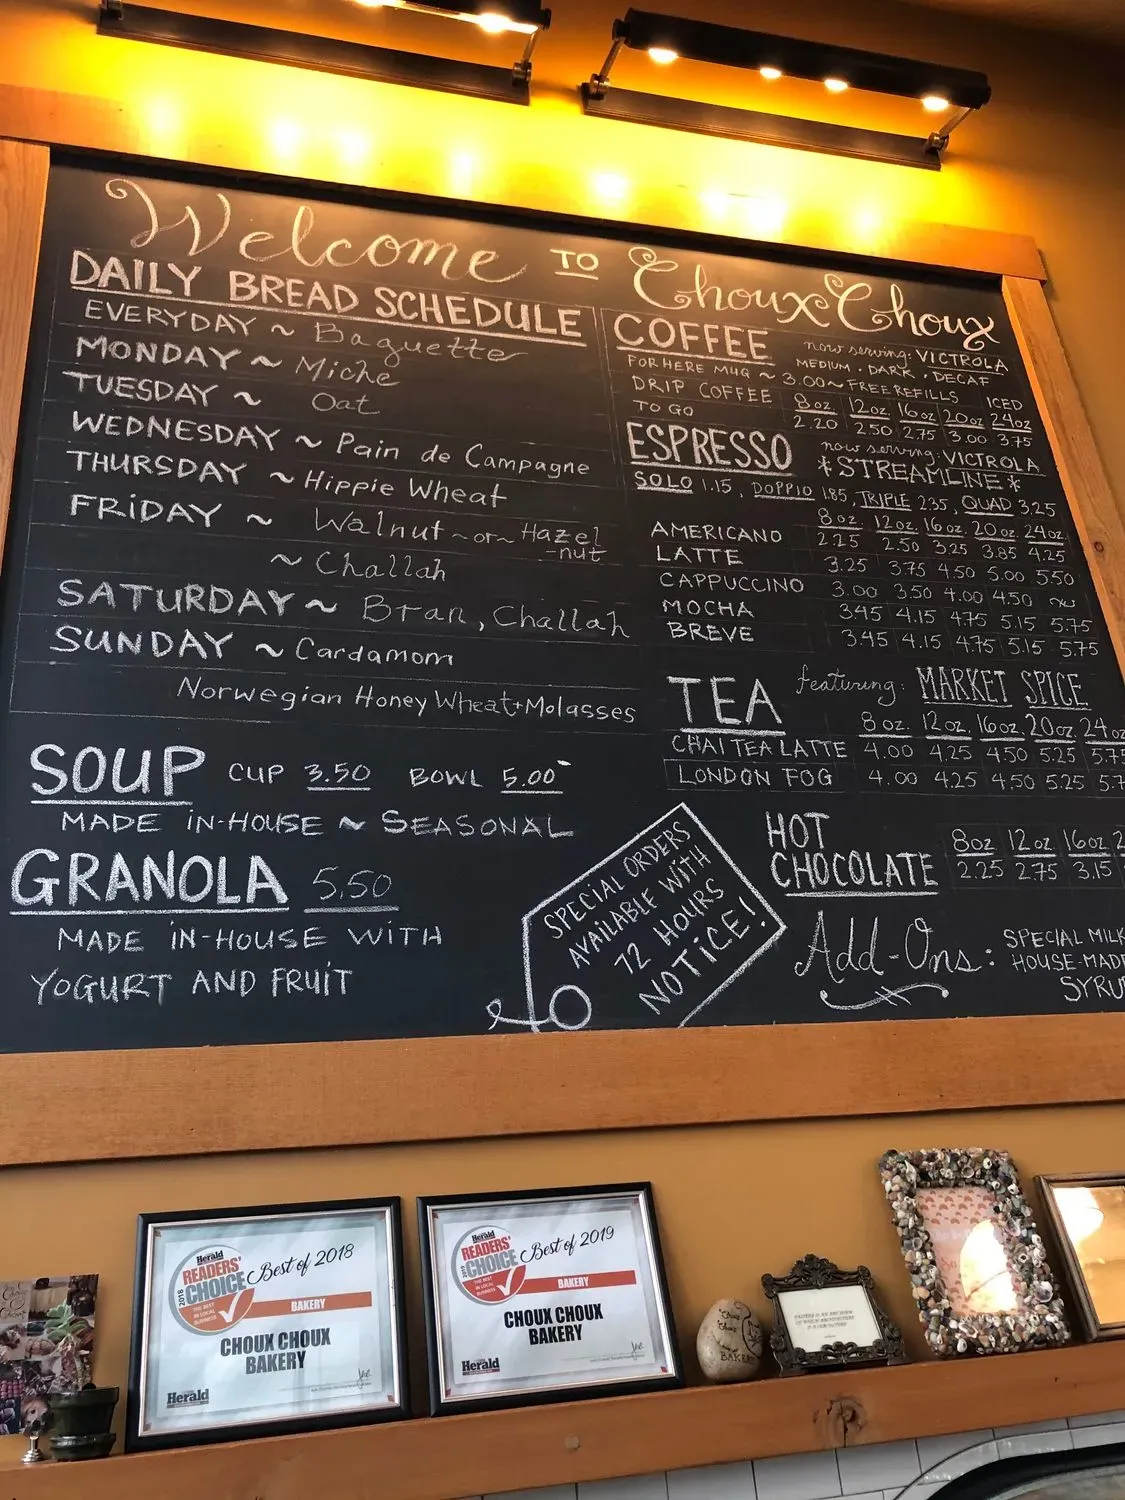 Welcome TO Choux Choux
DAILY BREAD SCHEDULE
EVERYDAY ~ Baguette
MONDAY ~ Miche
TUESDAY ~ Oat
WEDNESDAY ~ Pain de Campagne
THURSDAY ~ Hippie Wheat
FRIDAY ~ Walnut ~or~ Hazel
-nut
~ Challah
SATURDAY ~ Bran, Challah
SUNDAY ~ Cardamom
Norwegian Honey Wheat + Molasses
SOUP CUP 3.50 BOWL 5.00
MADE IN-HOUSE ~ SEASONAL
GRANOLA 5.50
MADE IN-HOUSE WITH
YOGURT AND FRUIT
COFFEE now serving: VICTROLA
MEDIUM · DARK · DECAF
FOR HERE MUG ~ 3.00 ~ FREE REFILLS ICED
DRIP COFFEE 8oz 12oz 16oz 20oz 24oz
TO GO 2.20 2.50 2.75 3.00 3.75
ESPRESSO now serving: VICTROLA
*STREAMLINE*
SOLO 1.15, DOPPIO 1.85, TRIPLE 2.35, QUAD 3.25
8oz. 12oz. 16oz. 20oz. 24oz.
AMERICANO 2.25 2.50 3.25 3.85 4.25
LATTE 3.25 3.75 4.50 5.00 5.50
CAPPUCCINO 3.00 3.50 4.00 4.50
MOCHA 3.45 4.15 4.75 5.15 5.75
BREVE 3.45 4.15 4.75 5.15 5.75
TEA featuring: MARKET SPICE
8 oz. 12 oz. 16oz. 20oz. 24 oz
CHAI TEA LATTE 4.00 4.25 4.50 5.25 5.75
LONDON FOG 4.00 4.25 4.50 5.25 5.7
SPECIAL ORDERS
AVAILABLE WITH
72 HOURS
NOTICE!
HOT
CHOCOLATE
8oz 12 oz. 16oz 2
2.25 2.75 3.15
Add-Ons: SPECIAL MILK
HOUSE-MADE
SYRU
Herald
READERS'
CHOICE
2018
THE BEST
IN LOCAL
BUSINESS
Best of 2018
BAKERY
CHOUX CHOUX
BAKERY
Herald
Herald
READERS'
CHOICE
2019
THE BEST
IN LOCAL
BUSINESS
Best of 2019
BAKERY
CHOUX CHOUX
BAKERY
Herald
Choux
Choux
BAKERY